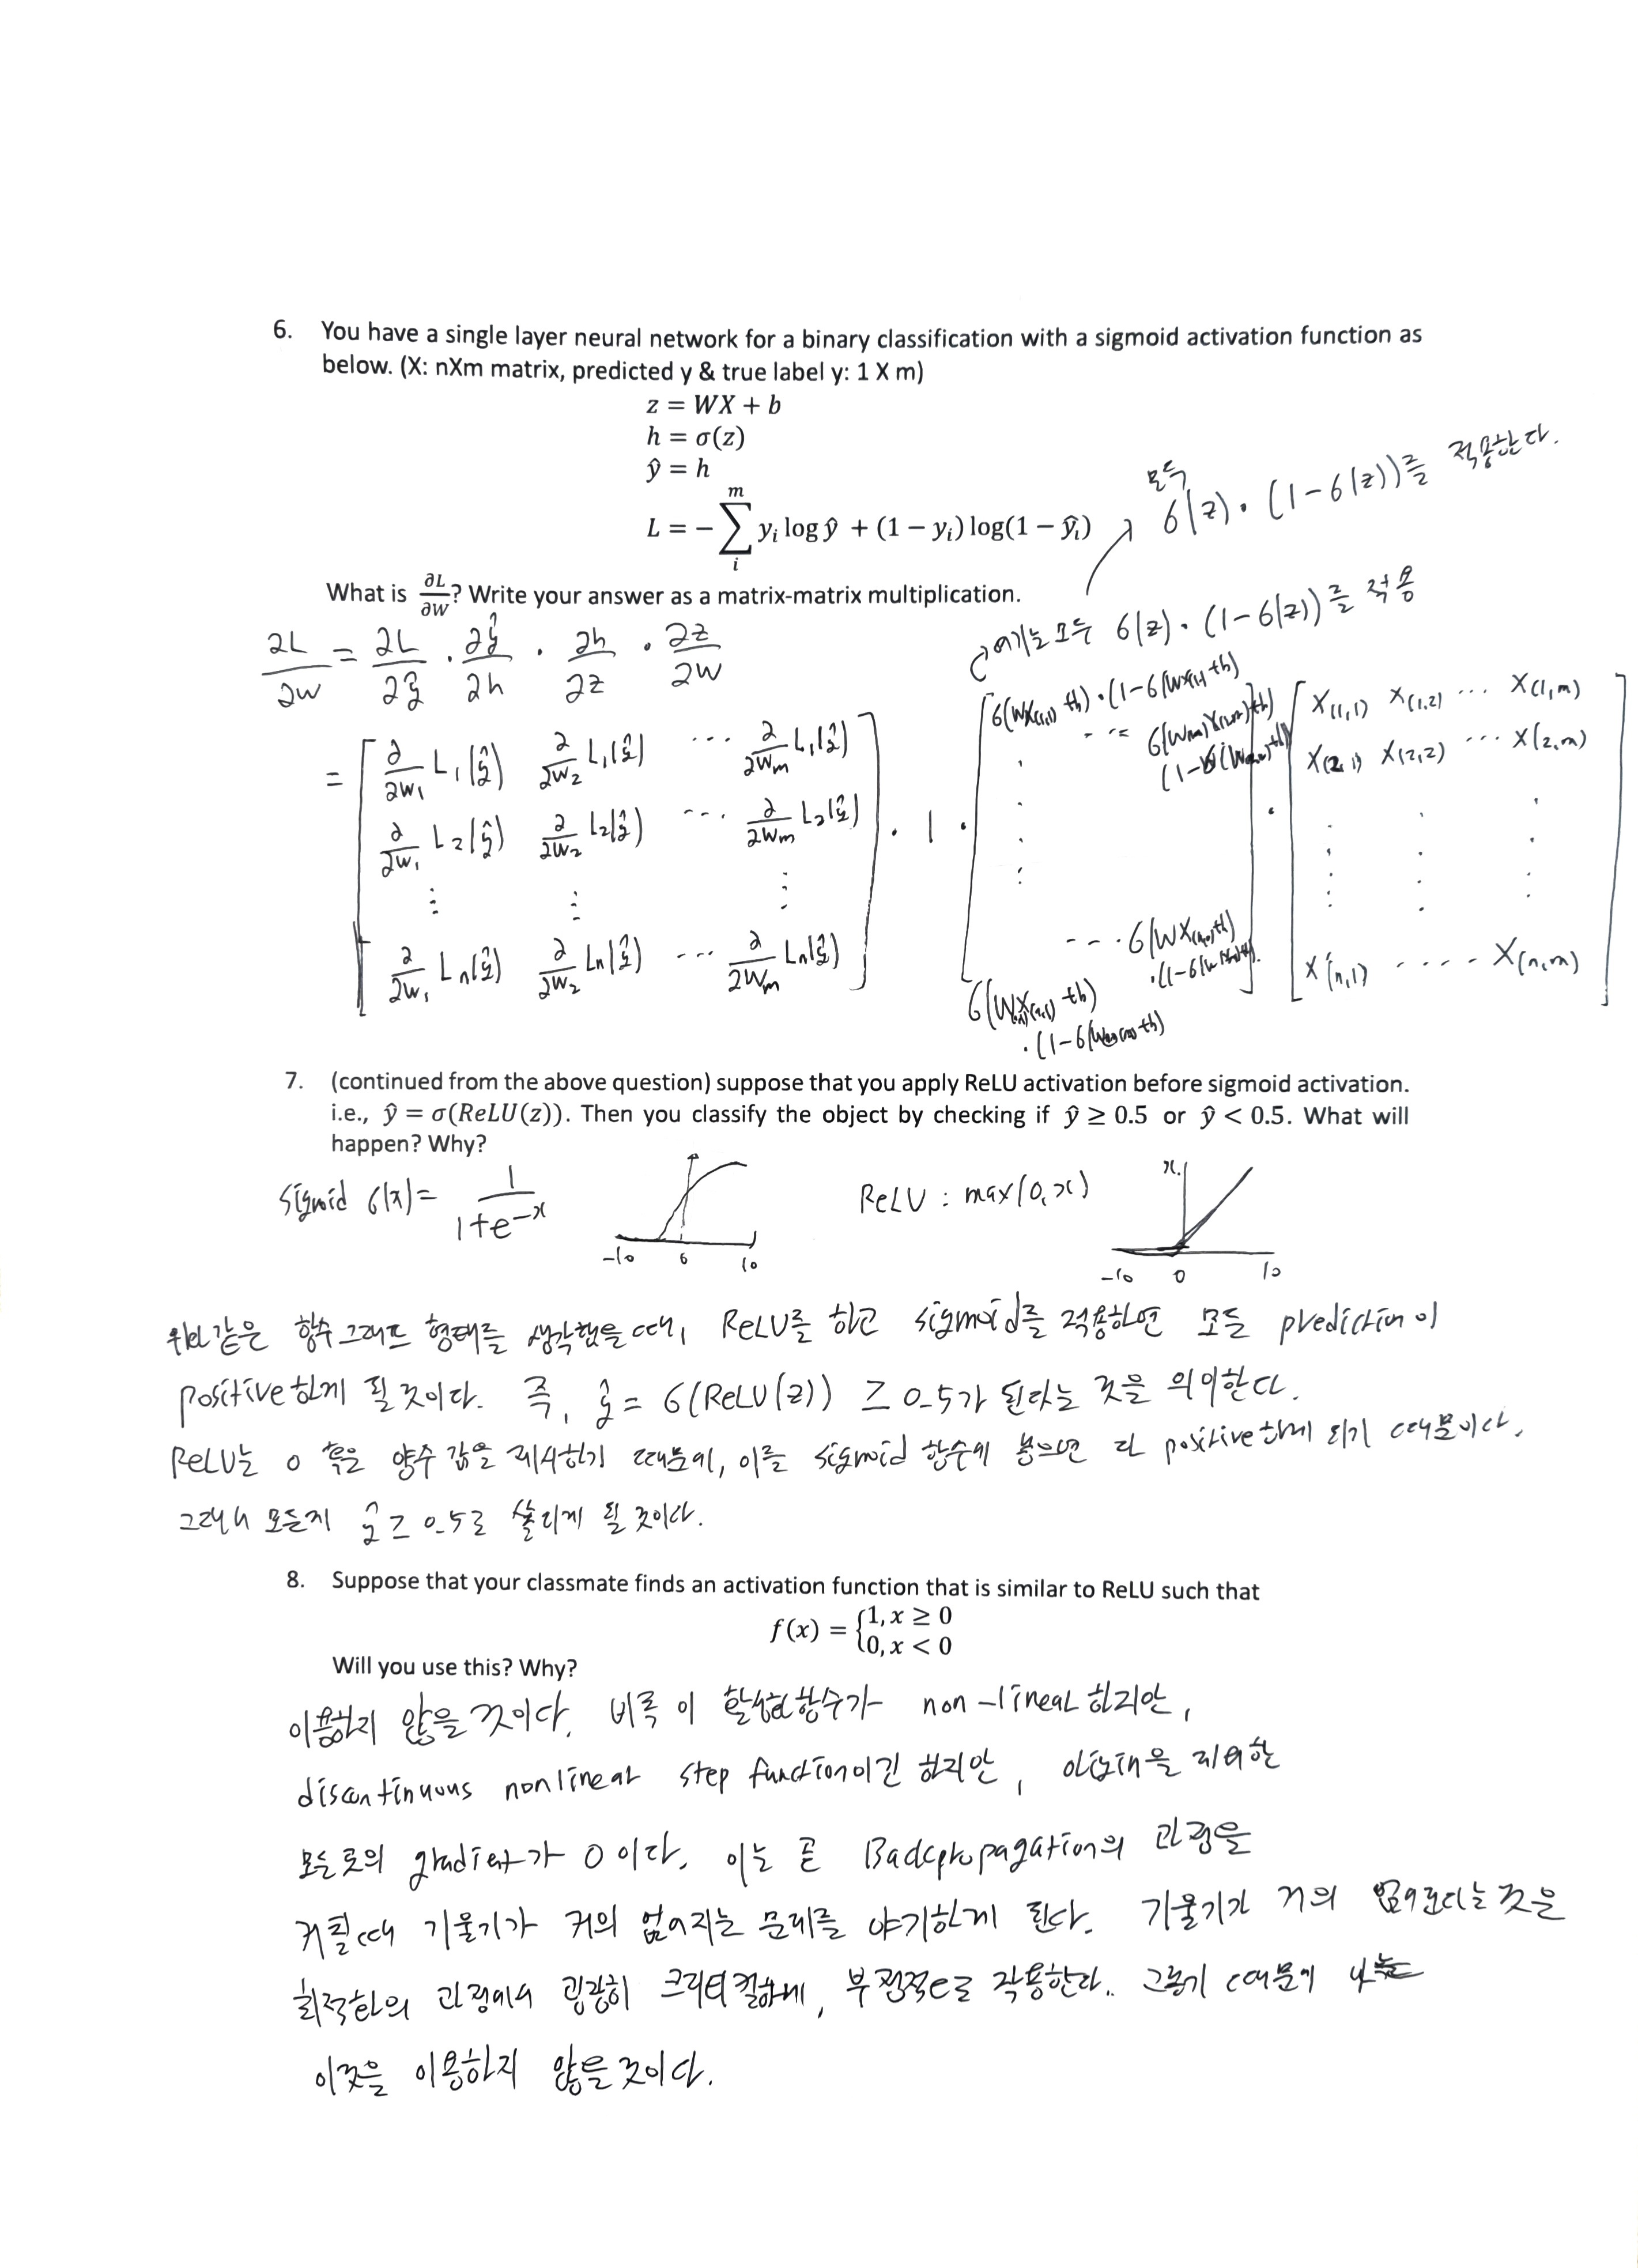 6. You have a single layer neural network for a binary classification with a sigmoid activation function as
below. (X: nXm matrix, predicted y & true label y: 1 X m)
z = WX + b
h = σ(z)
ŷ = h
L = − ∑_i^m y_i log ŷ + (1 − y_i) log(1 − ŷ_i)
모두 σ(z)·(1−σ(z))를 적용한다.
What is ∂L/∂W? Write your answer as a matrix-matrix multiplication.
여기는 모두 σ(z)·(1−σ(z))를 적용
∂L/∂w = ∂L/∂ŷ · ∂ŷ/∂h · ∂h/∂z · ∂z/∂w
= [ ∂/∂w₁ L₁(ŷ) ∂/∂w₂ L₁(ŷ) ... ∂/∂wₘ L₁(ŷ)
∂/∂w₁ L₂(ŷ) ∂/∂w₂ L₂(ŷ) ... ∂/∂wₘ L₂(ŷ)
∂/∂w₁ Lₙ(ŷ) ∂/∂w₂ Lₙ(ŷ) ... ∂/∂wₘ Lₙ(ŷ) ] · 1 ·
[ X(1,1) X(1,2) ... X(1,m)
X(2,1) X(2,2) ... X(2,m)
X(n,1) ..... X(n,m) ]
7. (continued from the above question) suppose that you apply ReLU activation before sigmoid activation.
i.e., ŷ = σ(ReLU(z)). Then you classify the object by checking if ŷ ≥ 0.5 or ŷ < 0.5. What will
happen? Why?
Sigmoid σ(x) = 1/(1+e^−x) -10 0 10 ReLU : max(0,x) x -10 0 10
위와 같은 함수 그래프 형태를 생각했을 때, ReLU를 하고 sigmoid를 적용하면 모든 prediction이
positive하게 될 것이다. 즉, ŷ = σ(ReLU(z)) ≥ 0.5가 된다는 것을 의미한다.
ReLU는 0 혹은 양수 값을 제시하기 때문에, 이를 sigmoid 함수에 넣으면 다 positive하게 되기 때문이다.
그래서 모든지 ŷ ≥ 0.5로 쏠리게 될 것이다.
8. Suppose that your classmate finds an activation function that is similar to ReLU such that
f(x) = {1, x ≥ 0
0, x < 0
Will you use this? Why?
이용하지 않을 것이다. 비록 이 활성화함수가 non-linear 하지만,
discontinuous nonlinear step function이긴 하지만, origin을 제외한
모든 곳의 gradient가 0이다. 이는 곧 Backpropagation의 과정을
거칠 때 기울기가 거의 없어지는 문제를 야기하게 된다. 기울기가 거의 없어진다는 것을
최적화의 과정에서 굉장히 크리티컬하게, 부정적으로 작용한다. 그렇기 때문에 나는
이것을 이용하지 않을 것이다.